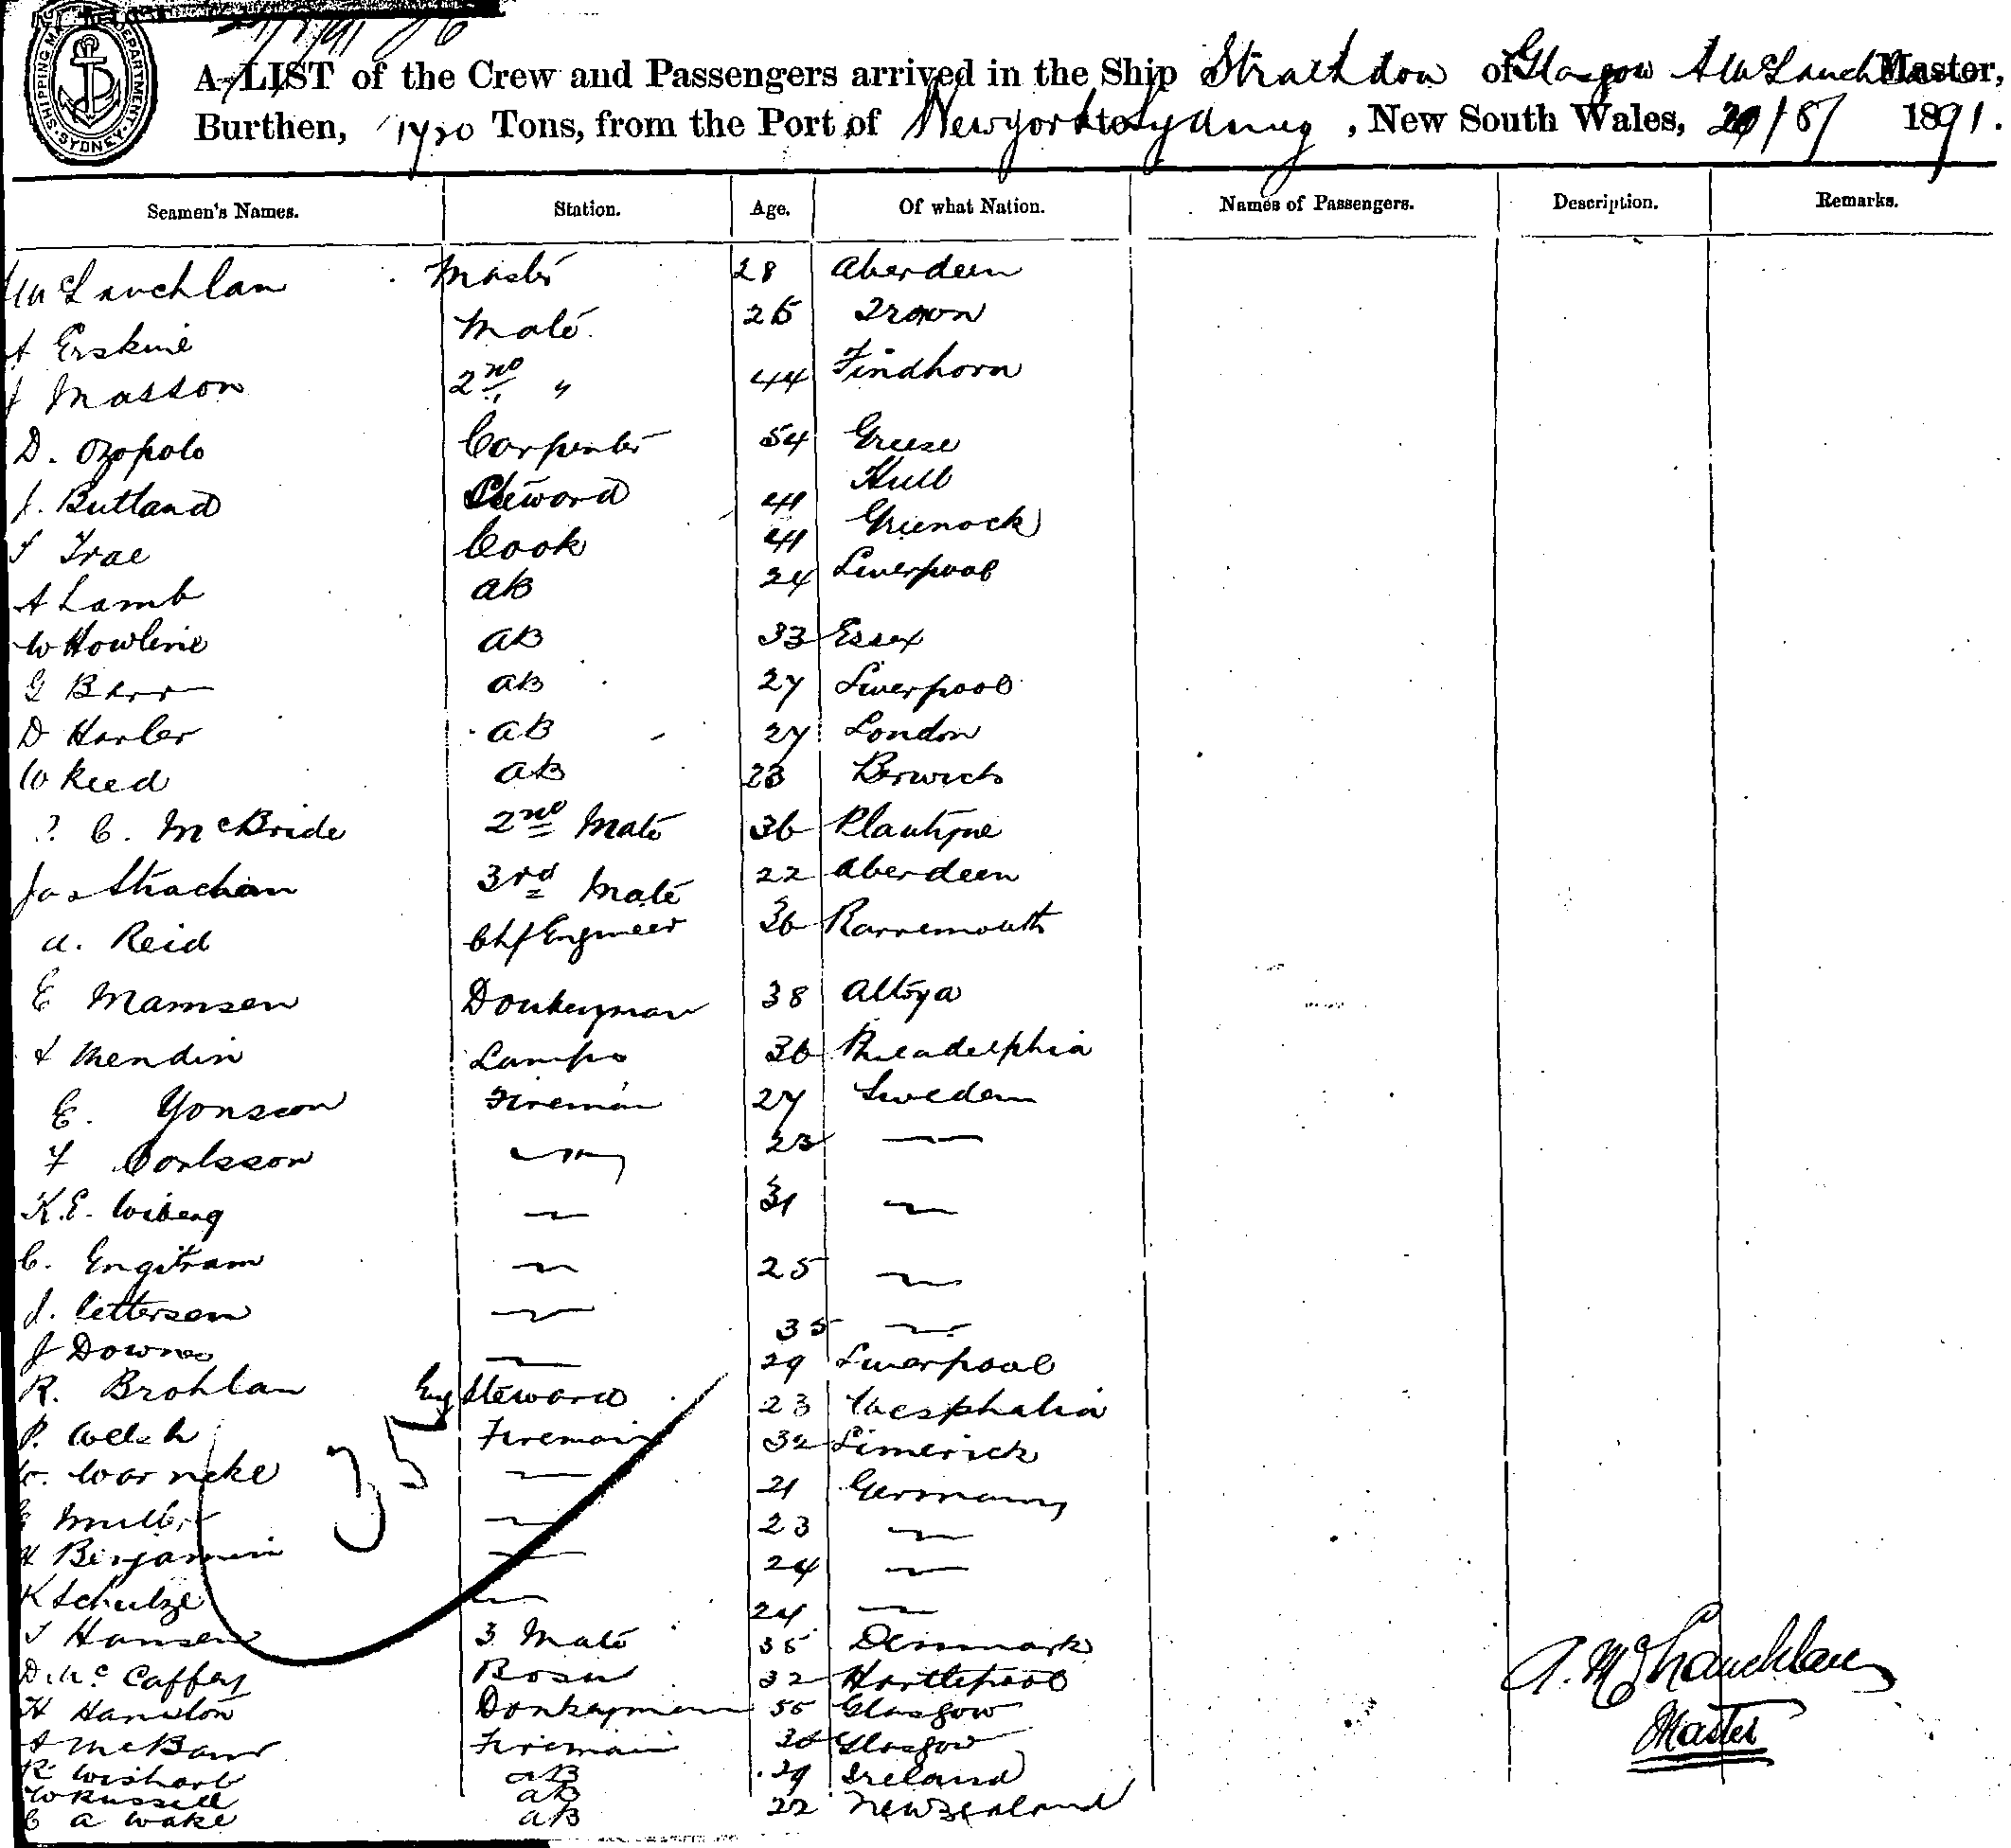 SHIPPING MASTER'S DEPARTMENT SYDNEY
A LIST of the Crew and Passengers arrived in the Ship Strathdon of Glasgow A McLauchlan Master,
Burthen, Tons, from the Port of New york to Sydney, New South Wales, 1891.
Seamen's Names. Station. Age. Of what Nation. Names of Passengers. Description. Remarks.
McLauchlan Master 28 Aberdeen
A Erskine Mate 25 Troon
J Masson 2nd " 44 Findhorn
D. Ozopolo Carpenter 54 Greese
J. Butland Steward 41 Hull
Cook 41 Greenock
A Lamb AB 24 Liverpool
W Howline AB 33 Essex
G Barr AB 27 Liverpool
D Harler AB 27 London
W Reed AB 23 Berwick
C. McBride 2nd Mate 36
Jas Strachan 3rd Mate 22 Aberdeen
A. Reid Chf Engineer 36
E Mamsen Donkeyman 38
Mendin Lamps 36 Philadelphia
E. Yonsson Fireman 27 Sweden
F Carlsson 23
K.E. Wiberg 31
C. Engstram 25
J. Pettersen 35
J Downes 29 Liverpool
R. Brohlan Eng Steward 23 Wesphalia
P. Welsh Fireman 32 Limerick
Warneke 21 Germany
35
Muller 23
H Benjamin 24
K Schulze 24
Hansen 3 Mate 35 Denmark
D. Mc Caffery Bosn 32 Hartlepool
H Hamilton Donkeyman 55 Glasgow
Fireman Glasgow
R Wishart AB 29 Ireland
W Russell AB 22 New Zealand
C A Wake AB
A. McLauchlan
Master